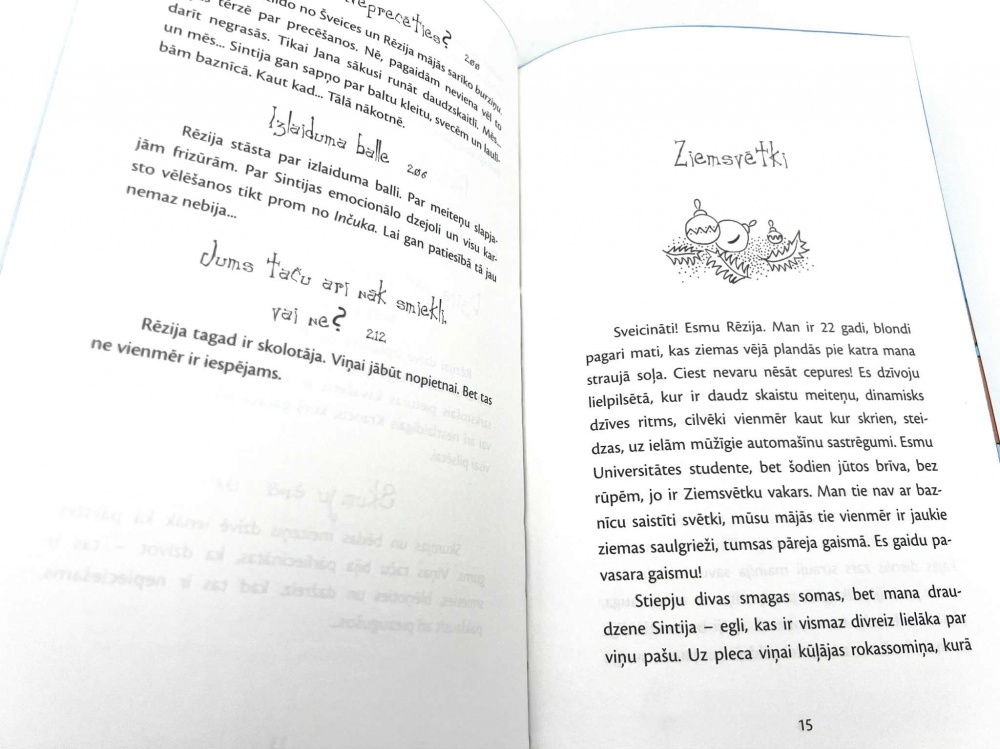 neprecēties?
200
no Šveices un Rēzija mājās sarīko burziņu.
tērzē par precēšanos. Nē, pagaidām neviena vēl to
darīt negrasās. Tikai Jana sākusi runāt daudzskaitlī. Mēs...
un mēs... Sintija gan sapņo par baltu kleitu, svecēm un lauli-
bām baznīcā. Kaut kad... Tālā nākotnē.
Izlaiduma balle
206
Rēzija stāsta par izlaiduma balli. Par meiteņu slapja-
jām frizūrām. Par Sintijas emocionālo dzejoli un visu kar-
sto vēlēšanos tikt prom no Inčuka. Lai gan patiesībā tā jau
nemaz nebija...
Jums taču arī nāk smiekli,
vai ne?
212
Rēzija tagad ir skolotāja. Viņai jābūt nopietnai. Bet tas
ne vienmēr ir iespējams.
Ziemsvētki
Sveicināti! Esmu Rēzija. Man ir 22 gadi, blondi
pagari mati, kas ziemas vējā plandās pie katra mana
straujā soļa. Ciest nevaru nēsāt cepures! Es dzīvoju
lielpilsētā, kur ir daudz skaistu meiteņu, dinamisks
dzīves ritms, cilvēki vienmēr kaut kur skrien, stei-
dzas, uz ielām mūžīgie automašīnu sastrēgumi. Esmu
Universitātes studente, bet šodien jūtos brīva, bez
rūpēm, jo ir Ziemsvētku vakars. Man tie nav ar baz-
nīcu saistīti svētki, mūsu mājās tie vienmēr ir jaukie
ziemas saulgrieži, tumsas pāreja gaismā. Es gaidu pa-
vasara gaismu!
Stiepju divas smagas somas, bet mana drau-
dzene Sintija – egli, kas ir vismaz divreiz lielāka par
viņu pašu. Uz pleca viņai kūļājas rokassomiņa, kurā
15